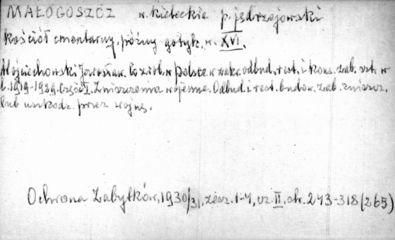 MAŁOGOSZCZ w. kieleckie p. jędrzejowski
kościół cmentarny, późny gotyk. w. XVI.
Wojciechowski Jarosław. Co zrob. w Polsce w zakr. odbud. rest. i kons. zab. szt. w
l. 1919-1929. Część I. Zniszczenia wojenne. Odbud. i rest. budow. zab. zniszcz.
lub uszkodz. przez wojnę.
Ochrona Zabytków, 1930/31, zesz. 1-4, cz. II. str. 243-318 (265)